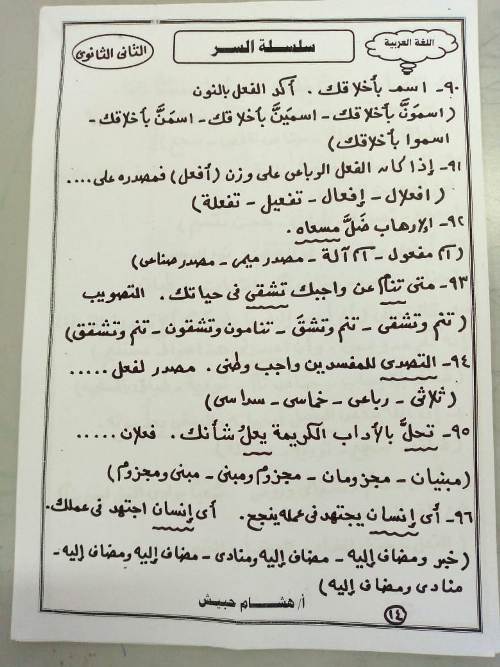 اللغة العربية
سلسلة السر
الثانى الثانوى
٩٠- اسمُ بأخلاقك . أكد الفعل بالنون
(اسموَنَّ بأخلاقك - اسميَنَّ بأخلاقك - اسمَنَّ بأخلاقك -
اسموا بأخلاقك)
٩١- إذا كان الفعل الرباعى على وزن (أفعل) فمصدره على ....
(افعلال - إفعال - تفعيل - تفعلة)
٩٢- الإرهاب ضَلَّ مسعاه .
(اسم مفعول - اسم آلة - مصدر ميمى - مصدر صناعى)
٩٣- متى تنام عن واجبك تشقى فى حياتك . التصويب
(تنم وتشقى - تنم وتشقَ - تنامون وتشقون - تنم وتشقق)
٩٤- التصدى للمفسدين واجب وطنى . مصدر لفعل .....
(ثلاثى - رباعى - خماسى - سداسى)
٩٥- تحلَّ بالآداب الكريمة يعلُ شأنك . فعلان .....
(مبنيان - مجزومان - مجزوم ومبنى - مبنى ومجزوم)
٩٦- أى إنسان يجتهد فى عمله ينجح . أى إنسان اجتهد فى عملك.
(خبر ومضاف إليه - مضاف إليه ومنادى - مضاف إليه ومضاف إليه -
منادى ومضاف إليه)
أ/ هشام حبيش
١٤